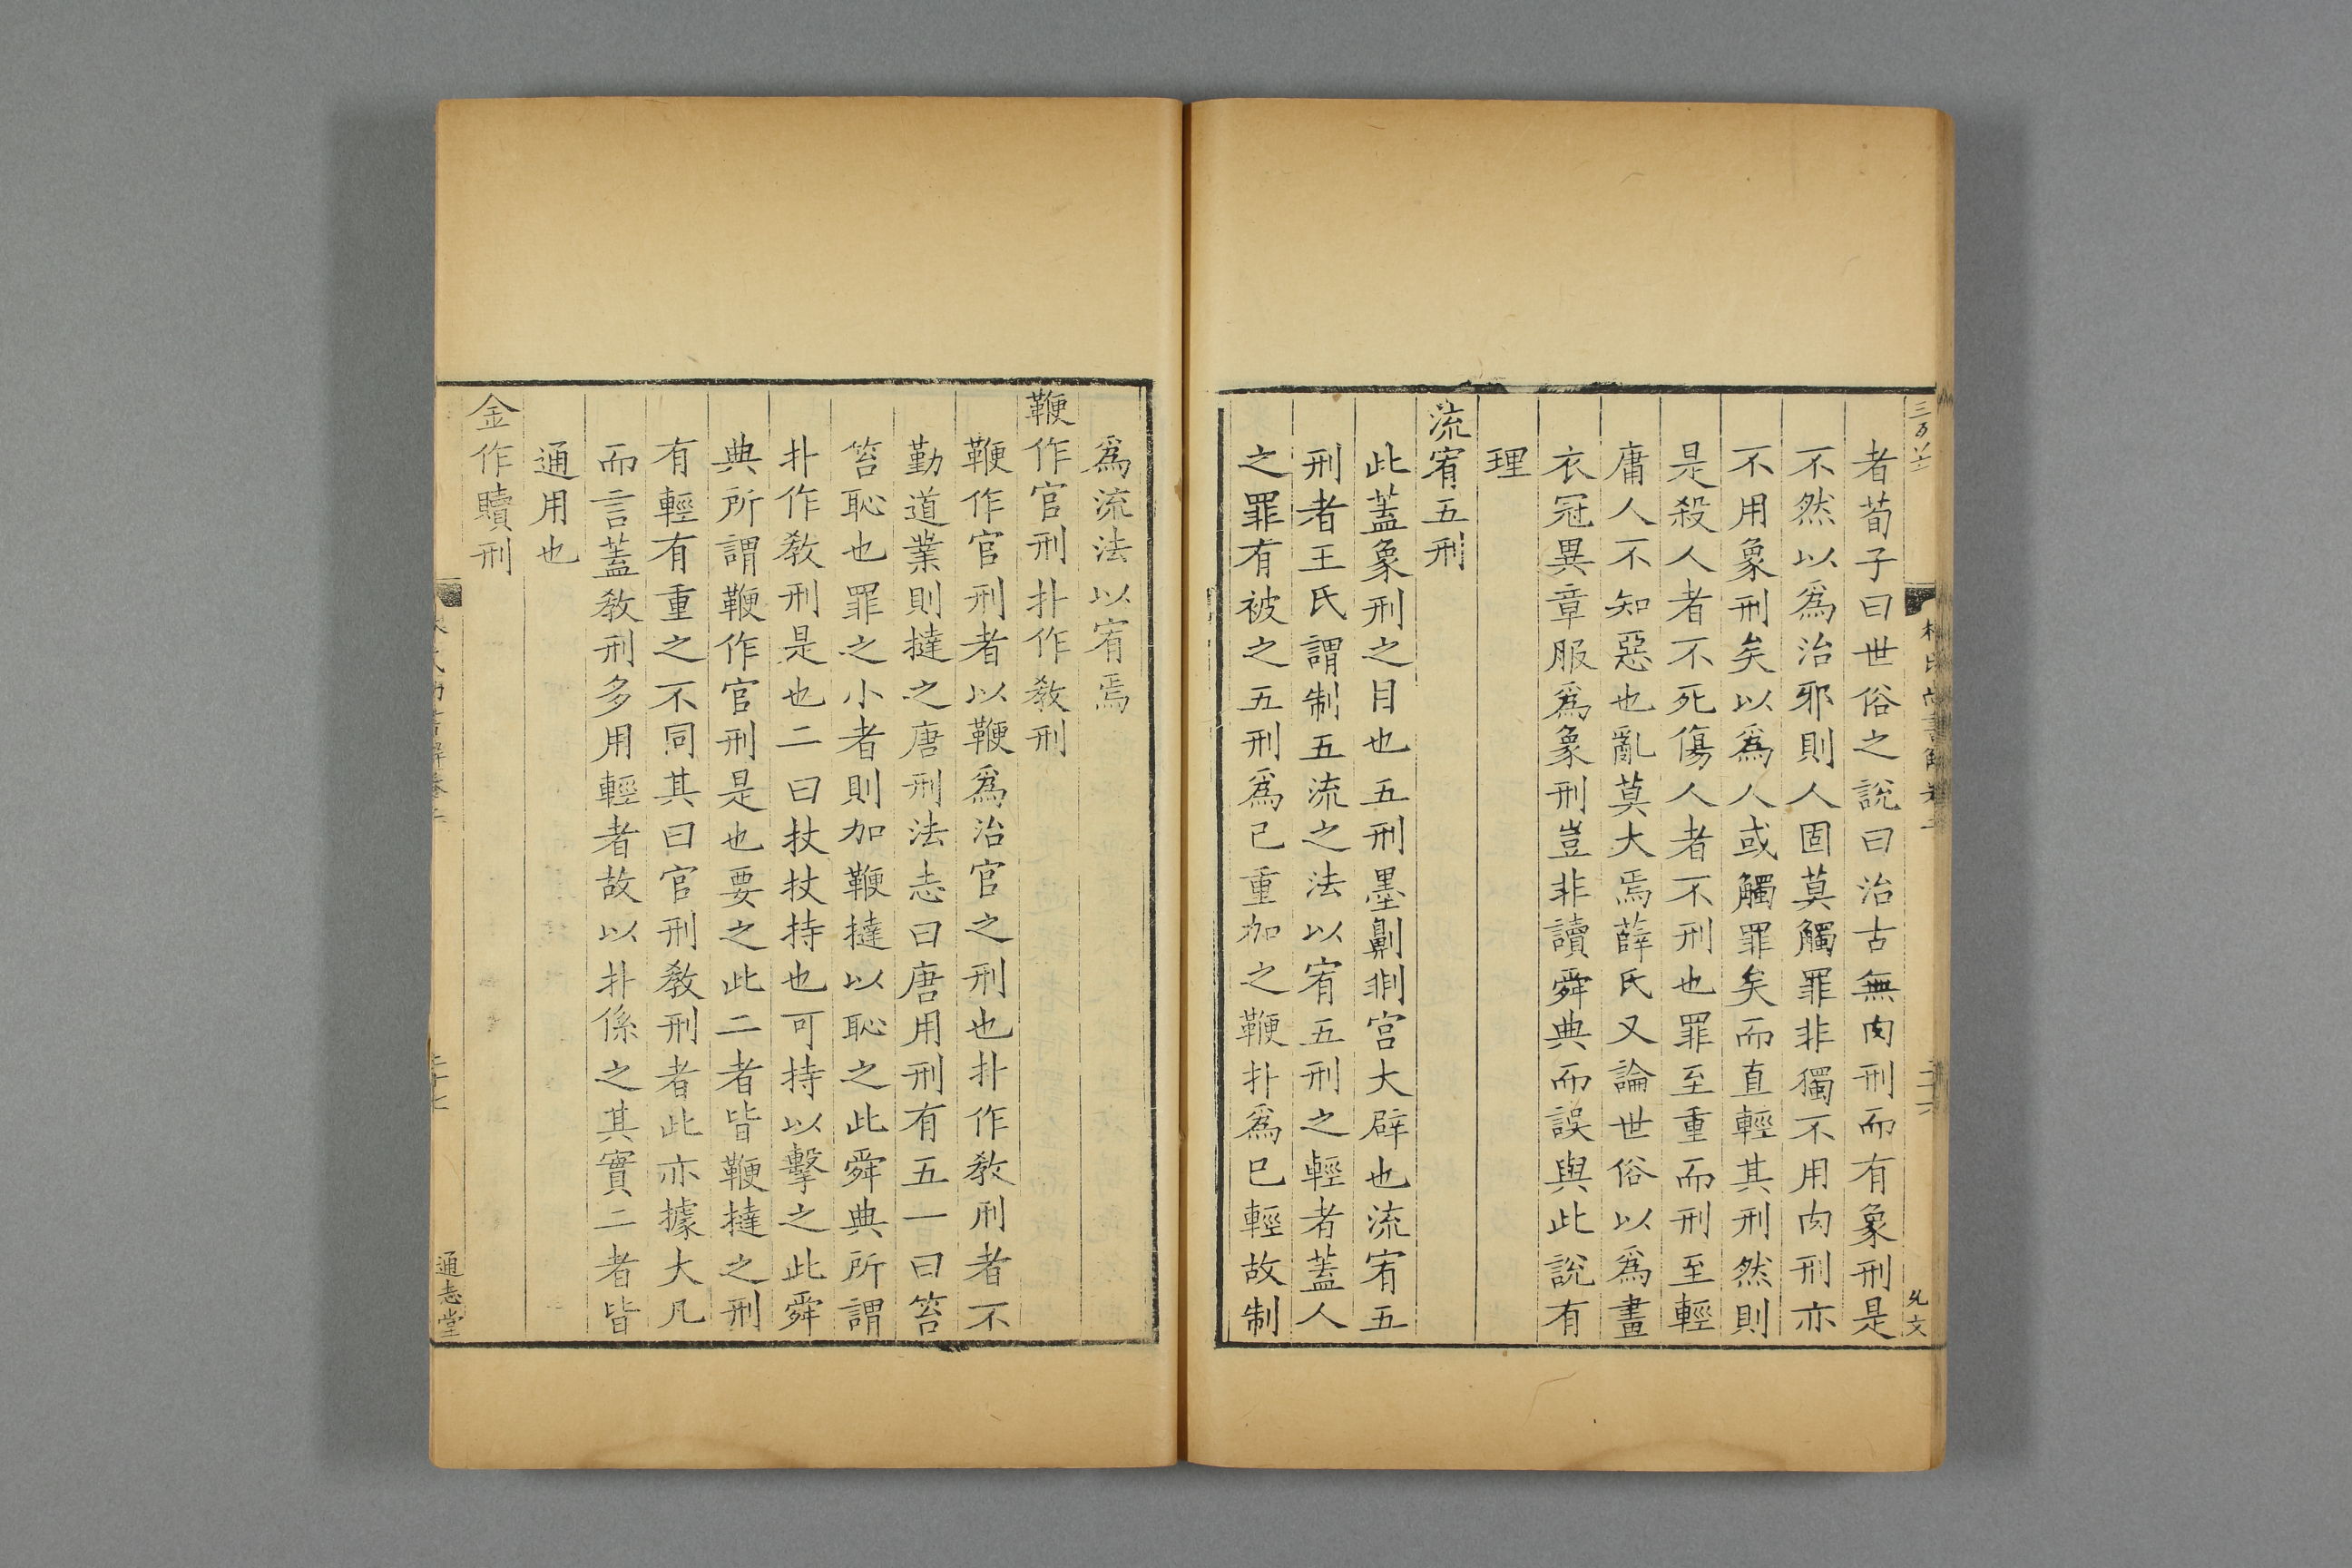 者荀子曰世俗之說曰治古無肉刑而有象刑是
不然以爲治邪則人固莫觸罪非獨不用肉刑亦
不用象刑矣以爲人或觸罪矣而直輕其刑然則
是殺人者不死傷人者不刑也罪至重而刑至輕
庸人不知惡也亂莫大焉薛氏又論世俗以爲畫
衣冠異章服爲象刑豈非讀舜典而誤與此說有
理
流宥五刑
此蓋象刑之目也五刑墨劓剕宮大辟也流宥五
刑者王氏謂制五流之法以宥五刑之輕者蓋人
之罪有被之五刑爲已重加之鞭扑爲已輕故制
爲流法以宥焉
鞭作官刑扑作敎刑
鞭作官刑者以鞭爲治官之刑也扑作敎刑者不
勤道業則撻之唐刑法志曰唐用刑有五一曰笞
笞恥也罪之小者則加鞭撻以恥之此舜典所謂
扑作敎刑是也二曰杖杖持也可持以擊之此舜
典所謂鞭作官刑是也要之此二者皆鞭撻之刑
有輕有重之不同其曰官刑敎刑者此亦據大凡
而言蓋敎刑多用輕者故以扑係之其實二者皆
通用也
金作贖刑
通志堂